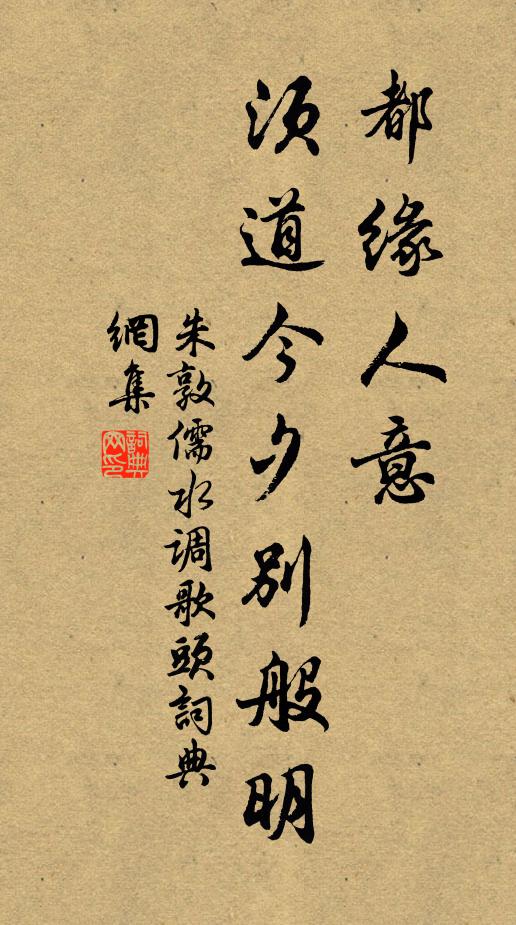 都缘人意
须道今夕别般明
朱敦儒水调歌頭詞典
網集
詞典
网印